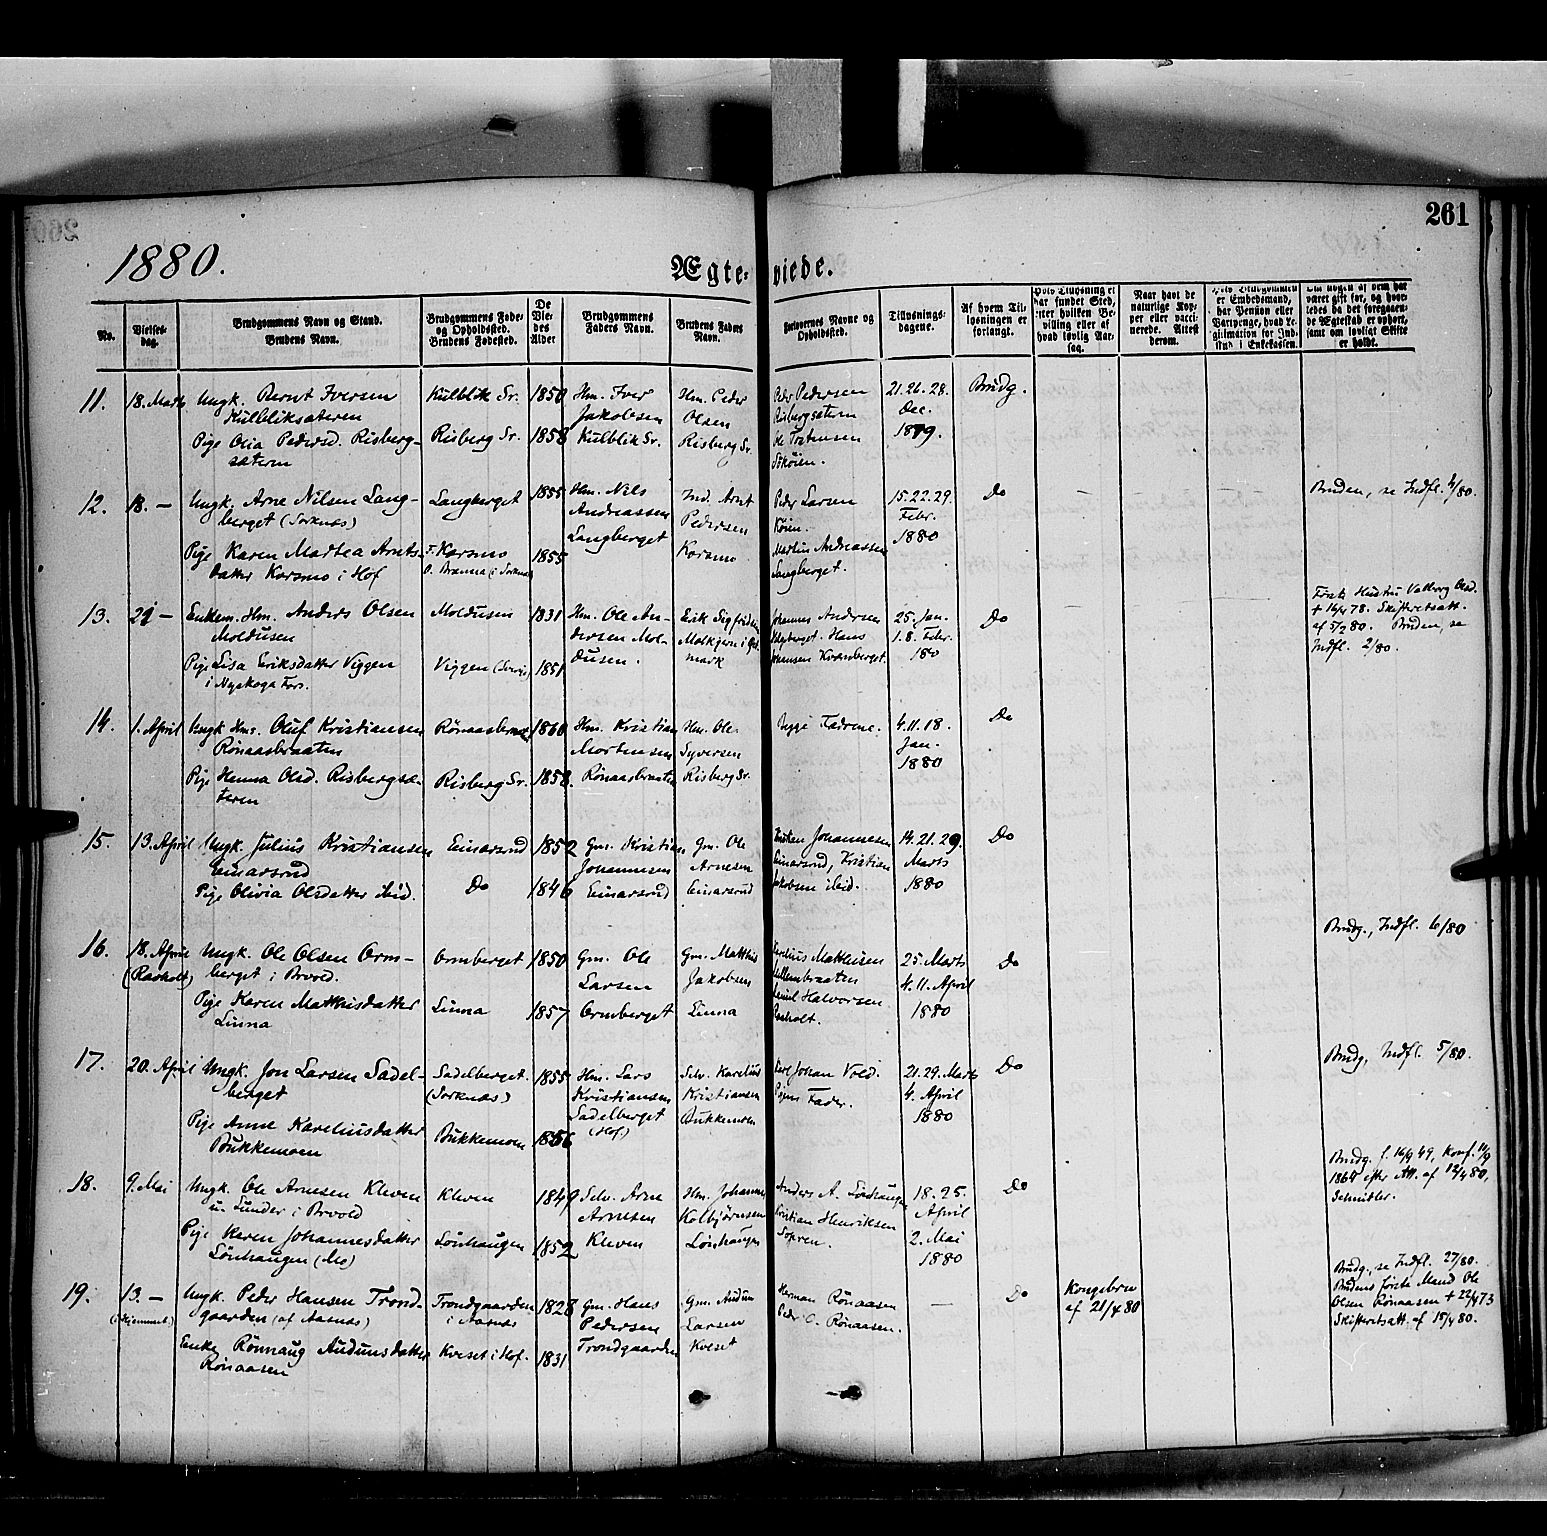 261
1880.
Ægteviede.
No.
Vielsesdag.
Brudgommens Navn og Stand.
Brudens Navn.
Brudgommens Føde- og Opholdssted.
Brudens Fødested.
De Viedes Alder
Brudgommens Faders Navn.
Brudens Faders Navn.
Forlovernes Navne og Opholdssted.
Tillysningsdagene.
Af hvem Tillysningen er forlangt.
Naar havt de naturlige Kopper eller vaccinerede. Attest derom.
11. 18. Marts Ungk. Bernt Iversen Kulblik Sr. 1850 Hm. Iver Hm. Peder Peder Pedersen 21. 26. 28. Brudg.
Kulbliksæteren Jakobsen Olsen Risbergsætern Dec.
Pige Olia Pedersd. Risberg- Risberg Sr. 1858 Kulblik Sr. Risberg Sr. Ole 1879.
sætern
12. 18. — Ungk. Arne Nilsen Lang- Langberget 1855 Hm. Nils Ind. Arnt Peder Larsen 15. 22. 29. Do Bruden, se Indfl. 4/80.
berget (Sorknæs) Andreassen Pedersen Febr.
Langberget Korsmo 1880
Pige Karen Martea Arnts- F. Korsmo 1855 Martin Andreassen
datter Korsmo i Hof O. Brænna (i Sorknæs) Langberget.
13. 21 — Enkem. Hm. Anders Olsen Moldusen 1831 Hm. Ole An- Erik Sigfridsen Johannes Andersen 25. Jan. Do Første Hustru Valborg Olsd.
Moldusen dersen Mol- Hans 1. 8. Febr. + 16/4 78. Skifteretsatt.
Pige Lisa Eriksdatter Viggen Viggen (Sverige) 1851 dusen. mark Johansen 180 af 5/2 80. Bruden, se
i Nyskoga Fors. Indfl. 2/80.
14. 1. April Ungk. Hms. Oluf Kristiansen Rönaasbraaten 1860 Hm. Kristian Hm. Ole Begge Fædrene. 4. 11. 18. Do
Rönaasbraaten Mortensen Syversen Jan.
Pige Henna Olsd. Risbergsæ- Risberg Sr. 1858. Rönaasbraaten Risberg Sr. 1880
tern
15. 13. April Ungk. Julius Kristiansen Einarsrud 1852 Gm. Kristian Gm. Ole Kristian Johannesen 14. 21. 29. Do
Einarsrud Johannesen Arnesen Einarsrud, Kristian Marts
Pige Olivia Olsdatter ibid. Do 1846 Einarsrud Einarsrud Jakobsen ibid. 1880
16. 18. April Ungk. Ole Olsen Orm- Ormberget 1850 Gm. Ole Gm. Matthis Matthisen 25. Marts Do Brudg., Indfl. 6/80
berget i Brvold. Larsen Jakobsen 4. 11. April
Pige Karen Matthisdatter Linna 1857 Ormberget Linna Halvorsen 1880
Linna
17. 20. April Ungk. Jon Larsen Sadel- Sadelberget. 1855 Hm. Lars Selv. Karelius Karl Johan Vold. 21. 29. Marts Do Brudg, Indfl. 5/80.
berget (Sorknæs) Kristiansen Kristiansen Pigens Fader. 4. April
Pige Anne Kareliusdatter Bukkemoen 1856 Sadelberget Bukkemoen 1880
Bukkemoen (Hof)
18. 9. Mai Ungk. Ole Arnesen Kleven Kleven 1849 Selv. Arne Hm. Johannes Anders A. Lönhaugen 18. 25. Do Brudg. f. 16/9 49, Konf. 11/9
u. Sunder i Brvold Arnesen Kolbjörnsen Kristian Henriksen April 1864 efter Att. af 12/4 80,
Pige Karen Johannesdatter Lönhaugen 1852 Kleven Lönhaugen Sopren. 2. Mai Schnitler.
Lönhaugen (Mo) 1880
19. 13. — Ungk. Peder Hansen Trond- Trondgaarden 1828 Gm. Hans Gm. Audun Herman Rönaasen — Do Kongebrev Brudg., se Indfl. 27/80.
(i Hjemmet) gaarden (af Aasnæs) i Aasnæs Pedersen Larsen Peder O. Rönaasen. af 21/4 80 Brudens første Mand Ole
Enke Rönnaug Audunsdatter Kveset i Hof. 1831 Trondgaarden Kveset Olsen Rönaasen + 22/4 73
Rönaasen Skifteretsatt. af 15/4 80.